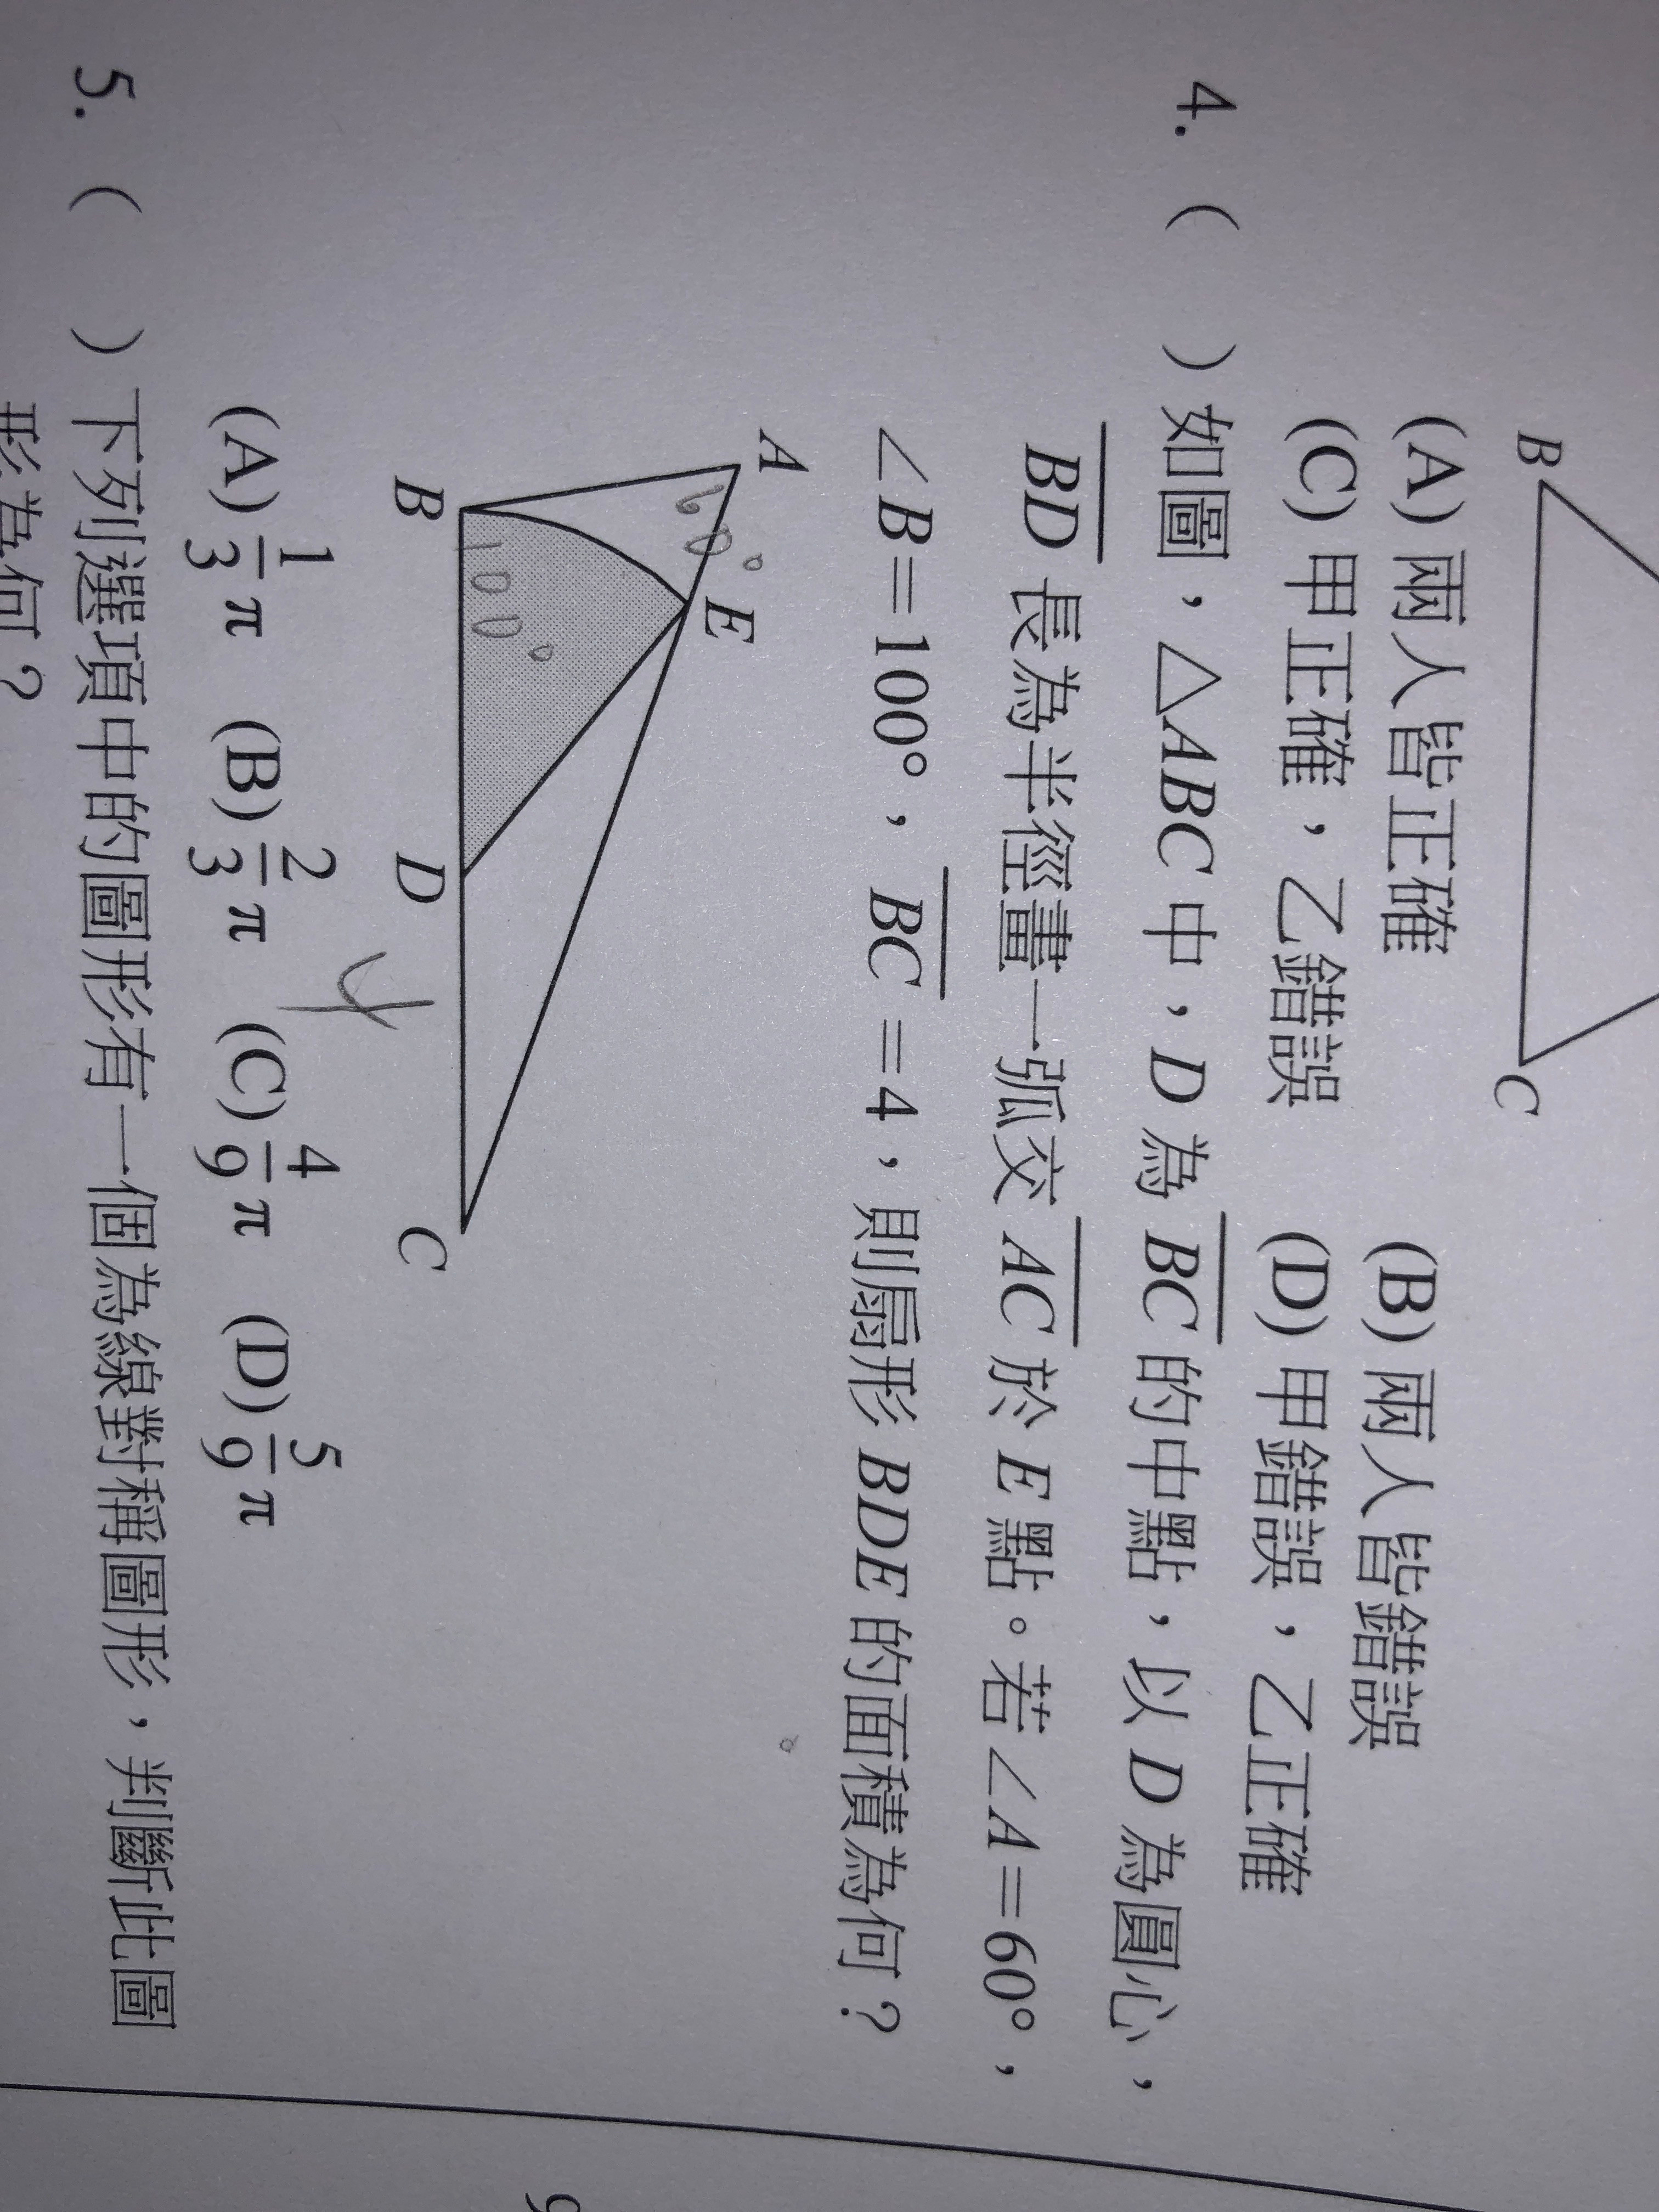 B
C
(A) 兩人皆正確 (B) 兩人皆錯誤
(C) 甲正確，乙錯誤 (D) 甲錯誤，乙正確
4. （ ）如圖，△ABC 中，D 為 BC 的中點，以 D 為圓心，
BD 長為半徑畫一弧交 AC 於 E 點。若∠A＝60°，
∠B＝100°，BC＝4，則扇形 BDE 的面積為何？
A
60°
E
100°
B
D
C
4
(A) 1/3 π (B) 2/3 π (C) 4/9 π (D) 5/9 π
5. （ ）下列選項中的圖形有一個為線對稱圖形，判斷此圖
形為何？